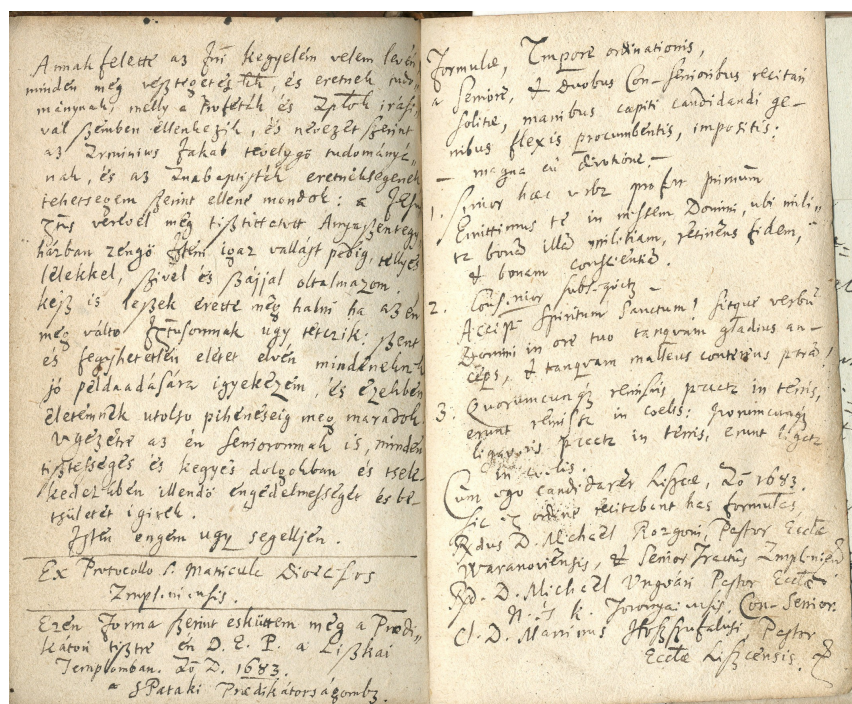 Annak felette az Jsni kegyelem velem levén
minden meg veszteget, és eretnek tudo-
mánynak, melly a Profeták és Aplok irasi,
val szemben ellenkezik, és nevezet szerint
az Arminius Jakab tevelygő tudomanyá-
nak, és az Anabaptisták eretnekségenek
tehetsegem szerint ellene mondok: a Jesus
Xtus verével meg tisztittatott Anyaszentegy,
házban zengő Jsteni igaz vallast pedig, tellyes
lélekkel, szivel és szájjal oltalmazom.
kész is leszek erette meg halni ha az én
meg váltó Xtusomnak ugy tetczik: szent
és fegyhetetlen életet elvén mindeneknek
jó példaadására igyekezem, és ezekben
életemnek utolso pihenéseig meg maradok.
Vegezetre az én Senioromnak is, minden
tisztességes és kegyes dolgokban és tsele-
kedetekben illendő engedelmességet és be-
tsületet igirek.
Jsten engem ugy segelljen.
Ex Protocollo s. Matricula Dioeceseos
Zempliniensis.
Ezen Forma szerint esküttem meg a Prædi-
kátori tisztre én D. E. P. a Liszkai
Templomban. Aō D. 1683.
a SPataki Prædikátorságombz.
Formulæ, Tmpore ordinationis,
a Seniore, & Duobus Con-Senioribus recitari
solitæ, manibus capiti candidandi ge-
nibus flexis procumbentis, impositis:
– magna cū devotione.–
1. Senior hæc verba profert primum
Emittimus te in messem Domini, ubi mili-
ta bonā illā militiam, retinens fidem,
& bonam conscientiā.
2. Cons.nior subs.
Accipe Spiritum Sanctum! sitque verbū
Domini in ore tuo tanquam gladius an-
ceps, & tanquam malleus conterens petrā!
3. Quorumcunq; remiseris peccata in terris,
erunt remissa in coelis: quorumcunq;
ligaveris peccata in terris, erunt ligata
in coelis.
Cum ego candidarer Liszcæ, Aō 1683.
sic ex ordine recitabant has formulas.
Rdus D. Michaël Rozgoni, Pastor Eccłæ
Varanoviensis, & Senior Tractus Zmplinien
Rd. D. Michaël Ungvári Pastor Eccłæ
Toronyaiensis, Con-Senior.
Cl. D. Martinus Hoszszufalusi Pastor
Eccłæ Liszcensis.